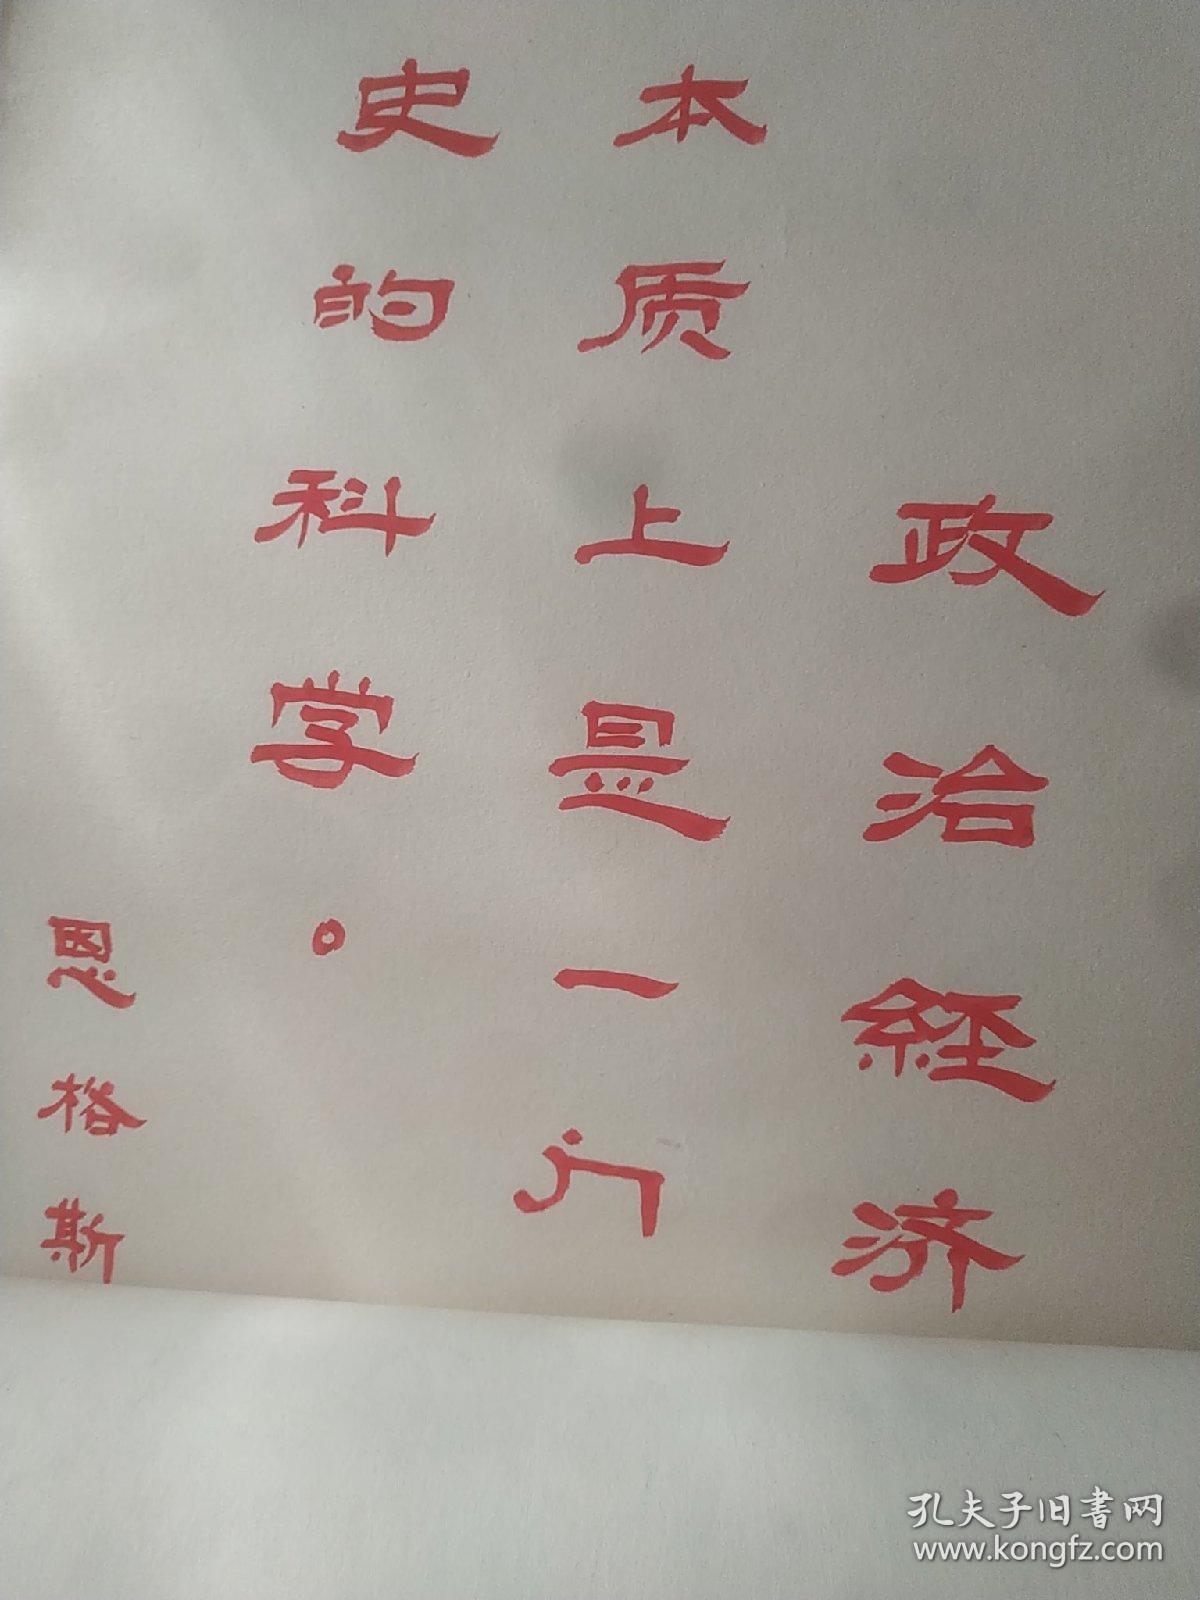 政治經济
本质上是一门
史的科学。
恩格斯
孔夫子旧書网
www.kongfz.com